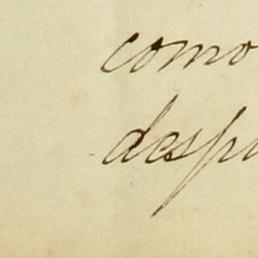 como
desp